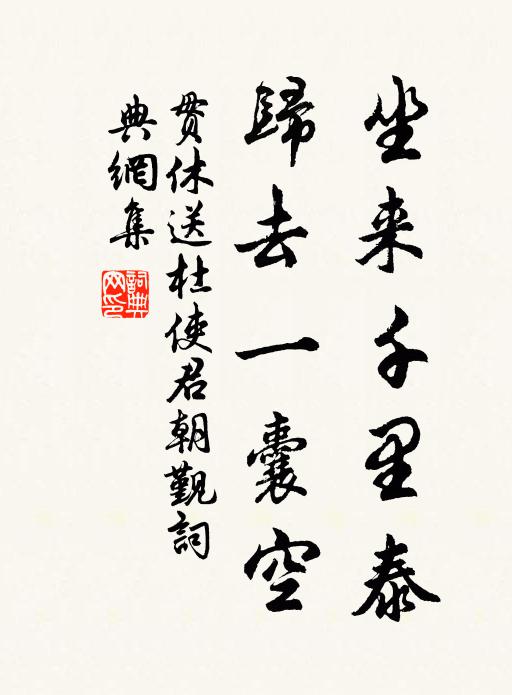 坐来千里泰
歸去一囊空
貫休送杜使君朝覲詞
典網集
詞典
网印